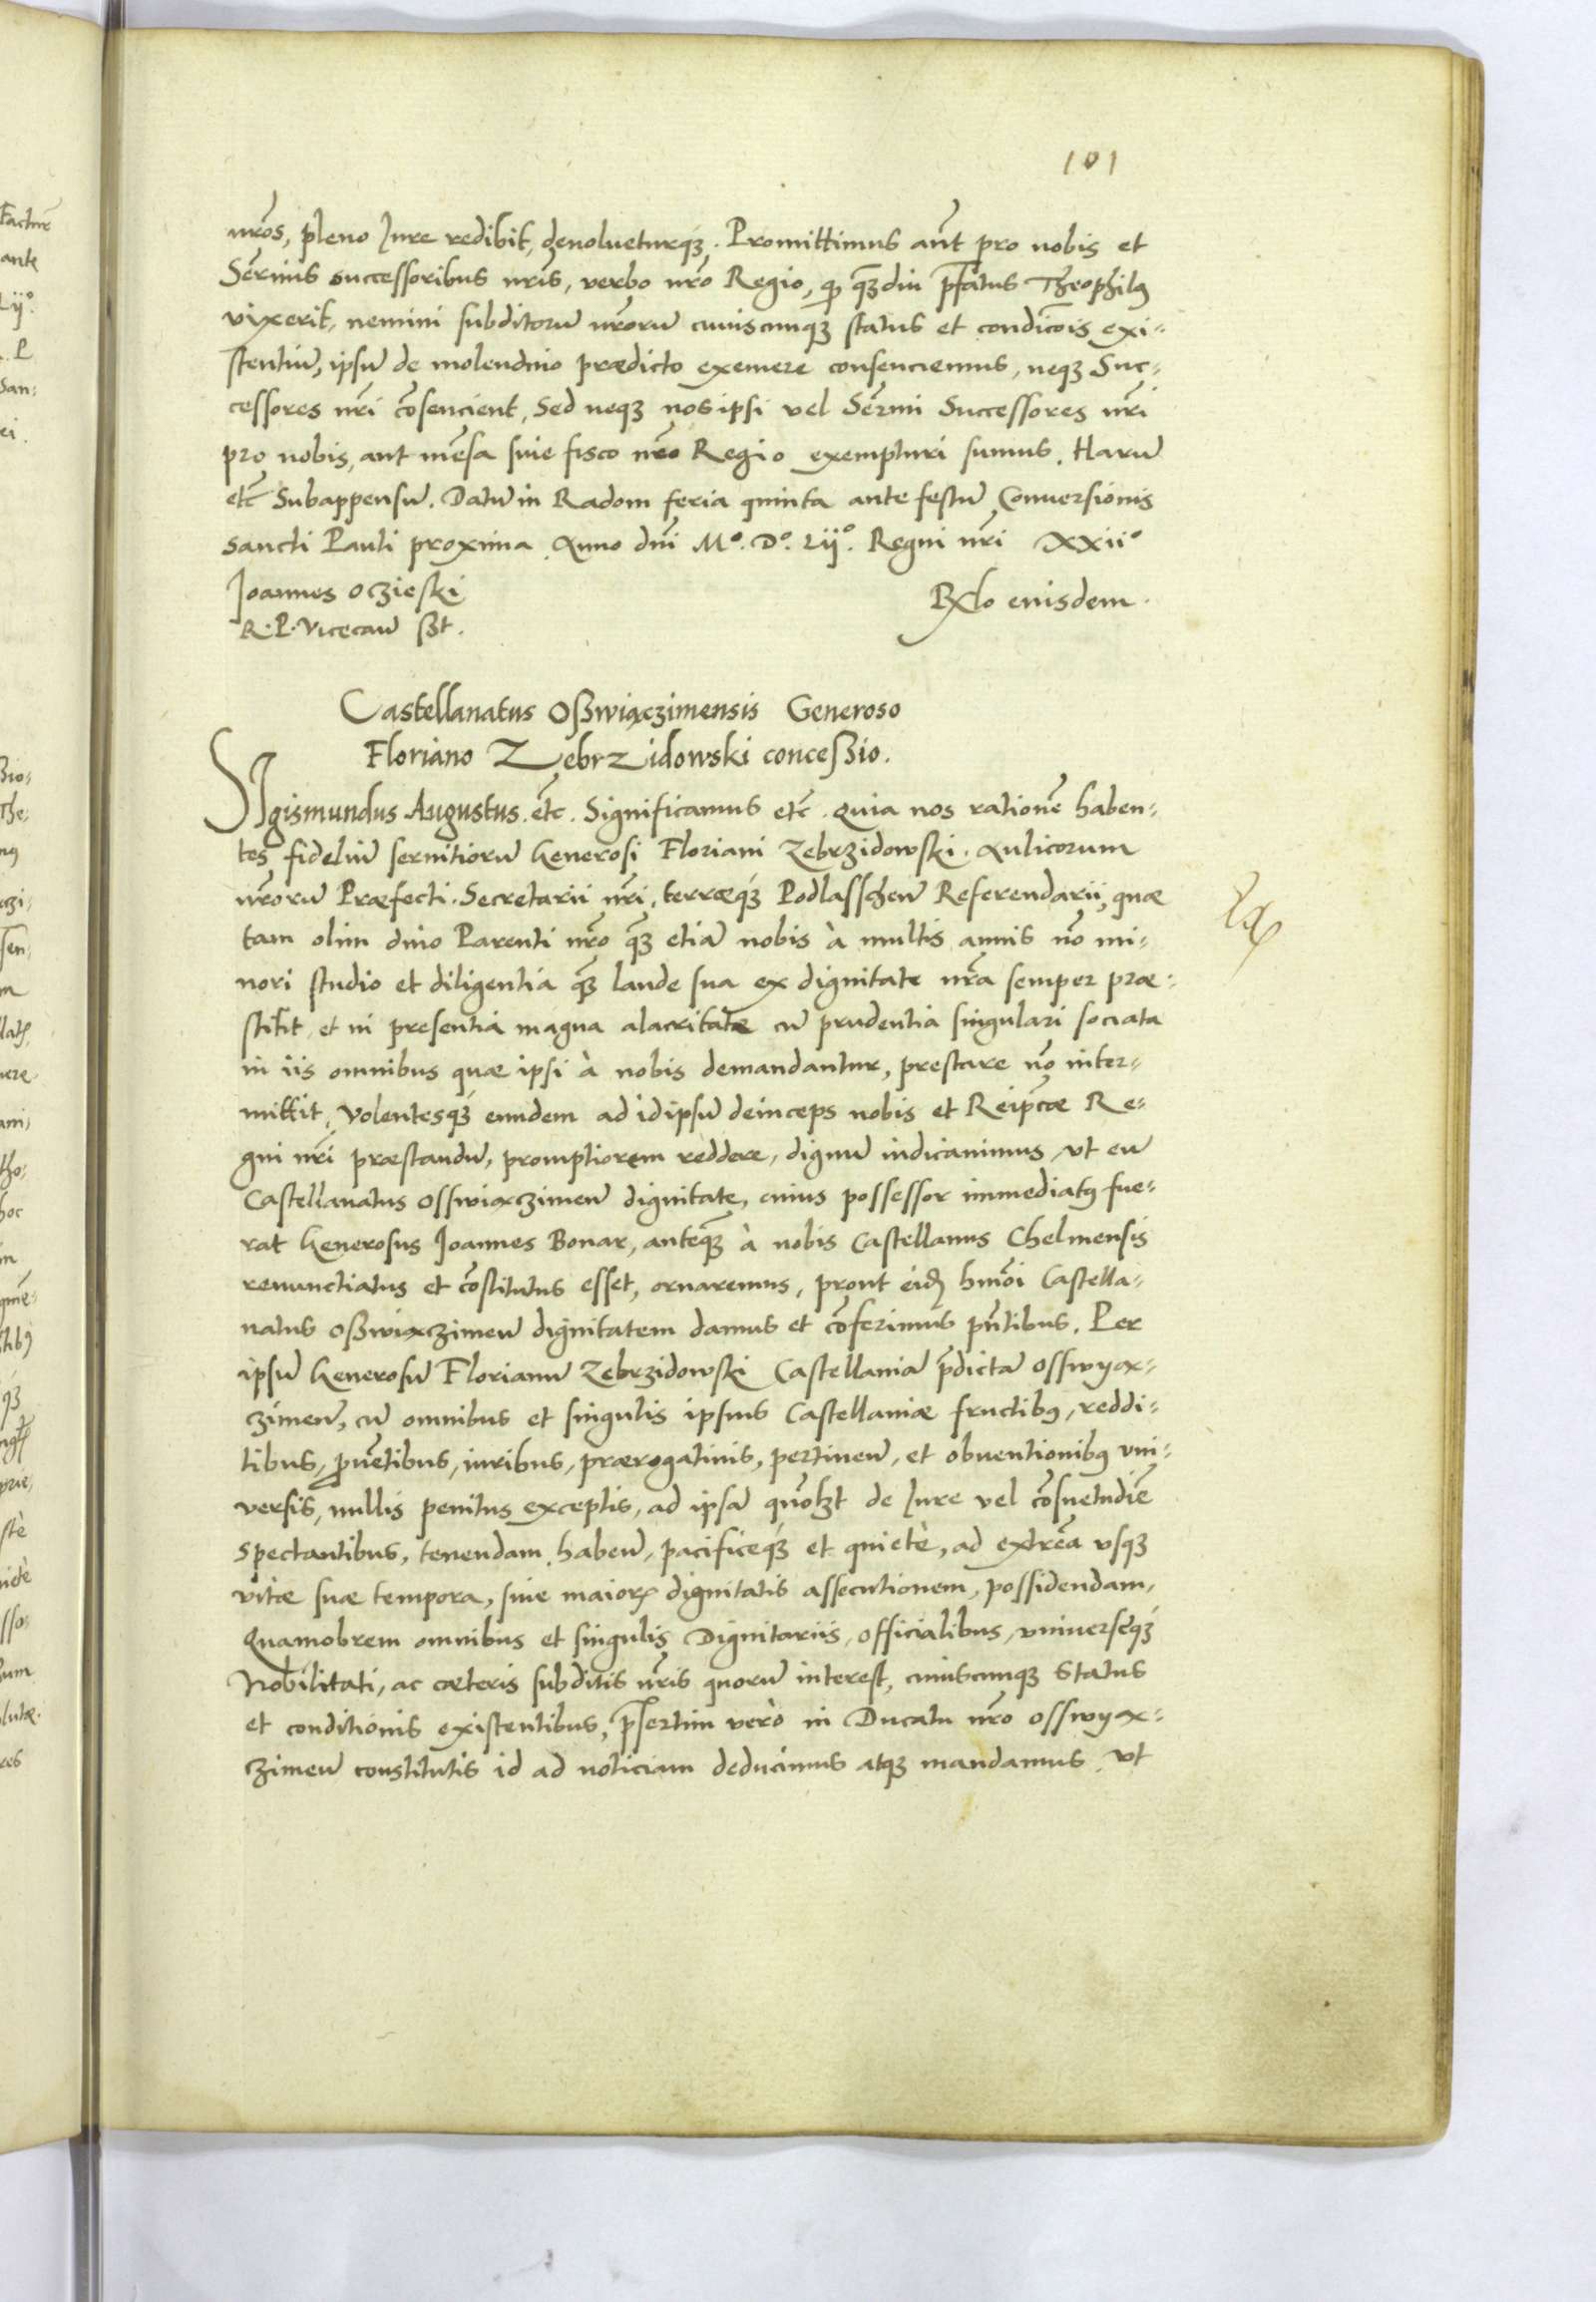 101
nr̃os, pleno Iure redibit, deuolueturq́ꝫ. Promittimus aũt pro nobis et
Ser̃mis successoribus nr̃is, verbo nr̃o Regio, ꝙ qꝫ̃diu p̃fatus Theophilꝰ
vixerit, nemini subditorũ nr̃orũ cuiuscunqꝫ status et condicõis exi-
stentiũ, ipsũ de molendino prædicto exemere consenciemus, neqꝫ Suc-
cessores nr̃i cõsencient, Sed neqꝫ nos ipsi vel Ser̃mi Successores nr̃i
pro nobis, aut mẽsa siue fisco nr̃o Regio exempturi sumus. Harũ
etc̃ Subappensũ. Datũ in Radom feria quinta ante festũ Conuersionis
sancti Pauli proxima. Anno dñi Mº. Dº. Lijº. Regni nr̃i XXiiº
Joannes Oczieski
R. P. Vicecañ sßt.
Rẽlo eiusdem.
Castellanatus Oßwiączimensis Generoso
Floriano Zebrzidowski conceßio.
SIgismundus Augustus. etc̃. Significamus etc̃. Quia nos rationẽ haben-
tes fideliũ seruitiorũ Generosi Floriani Zebrzidowski. Aulicorum
nr̃orũ Præfecti. Secretarii nr̃i, terræq́ꝫ Podlasscheñ Referendarii, quæ
tam olim diuo Parenti nr̃o qꝫ̃ etiã nobis à multis annis nõ mi-
nori studio et diligentia qꝫ̃ laude sua ex dignitate nr̃a semper præ-
stitit, et in presentia magna alacritate cũ prudentia singulari sociata
in iis omnibus quæ ipsi à nobis demandantur, prestare nõ inter-
mittit, Volentesq́ꝫ eundem ad id ipsũ deinceps nobis et Reipc̃æ Re-
gni nr̃i præstandũ, promptiorem reddere, dignũ iudicauimus, vt eũ
Castellanatus Osswiączimeñ dignitate, cuius possessor immediatꝰ fue-
rat Generosus Joannes Bonar, anteqꝫ̃ à nobis Castellanus Chelmensis
renunctiatus et cõstitutus esset, ornaremus, prout eid̃ hmõi Castella-
natus Oßwiączimeñ dignitatem damus et cõferimus pñtibus. Per
ipsũ Generosũ Florianũ Zebrzidowski Castellaniã p̃dictã Osswyą-
czimeñ, cũ omnibus et singulis ipsius Castellaniæ fructibꝰ, reddi-
tibus, prouẽtibus, iuribus, prærogatiuis, pertineñ, et obuentionibꝰ vni-
versis, nullis penitus exceptis, ad ipsã quõlꝫt de Iure vel cõsuetudiẽ
spectantibus, tenendam, habeñ, pacificeq́ꝫ et quietè, ad extrẽa vsqꝫ
vitæ suæ tempora, siue maiorꝭ dignitatis assecutionem, possidendam,
Quamobrem omnibus et singulis Dignitariis, officialibus, vniuerseq́ꝫ
Nobilitati, ac cæteris subditis nr̃is quorũ interest, cuiuscunqꝫ Status
et conditionis existentibus, p̃sertim verò in Ducatu nr̃o Osswyą-
czimeñ constitutis id ad noticiam deducimus atqꝫ mandamus, vt